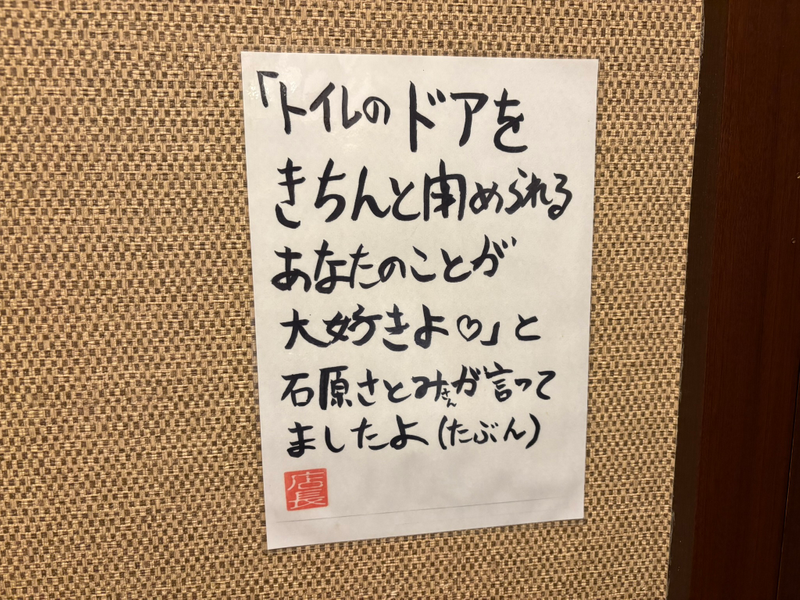 「トイレのドアを
きちんと閉められる
あなたのことが
大好きよ♡」と
石原さとみさんが言って
ましたよ(たぶん)
店長